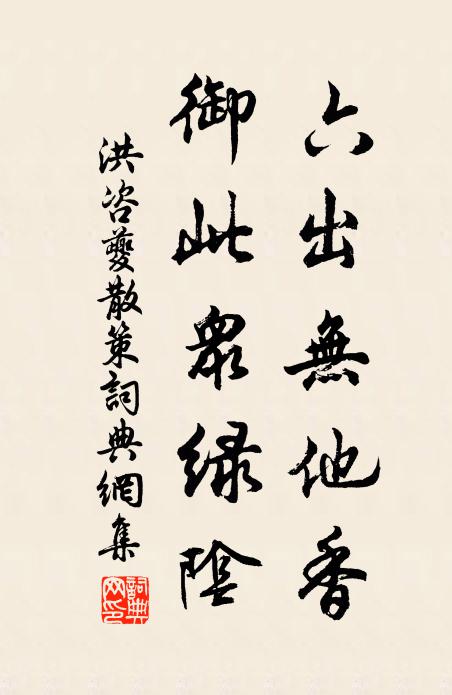 六出無他香
御此眾绿陰
洪咨夔散策詞典網集
詞典网印